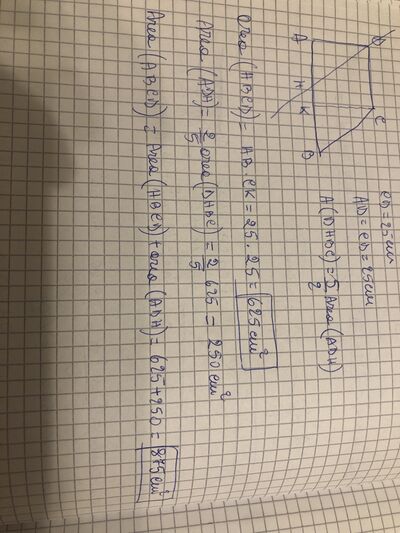 D C
A H K B
CD = 25 cm
AD = CD = 25 cm
A (DHBC) = 5/2 Area (ADH)
Area (HBCD) = HB · CK = 25 · 25 = 625 cm²
Area (ADH) = 2/5 area (DHBC) = 2/5 625 = 250 cm²
Area (ABCD) = Area (HBCD) + area (ADH) = 625 + 250 = 875 cm²